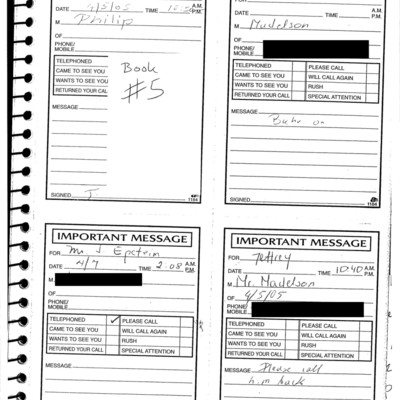 DATE 4/5/05 TIME A.M. P.M.
M Philip
OF
PHONE/
MOBILE
TELEPHONED
CAME TO SEE YOU
WANTS TO SEE YOU
RETURNED YOUR CAL
Book
#5
MESSAGE
SIGNED J
1184
M Madelson
OF
PHONE/
MOBILE
TELEPHONED PLEASE CALL
CAME TO SEE YOU WILL CALL AGAIN
WANTS TO SEE YOU RUSH
RETURNED YOUR CALL SPECIAL ATTENTION
MESSAGE
SIGNED
1184
IMPORTANT MESSAGE
FOR Mr J Epstein
DATE 4/7 TIME 2:08 A.M. P.M.
M
OF
PHONE/
MOBILE
TELEPHONED ✓ PLEASE CALL
CAME TO SEE YOU WILL CALL AGAIN
WANTS TO SEE YOU RUSH
RETURNED YOUR CALL SPECIAL ATTENTION
MESSAGE
IMPORTANT MESSAGE
FOR Jeffrey
DATE TIME 10:40 A.M. P.M.
M Mr. Madelson
OF 4/5/05
PHONE/
MOBILE
TELEPHONED PLEASE CALL
CAME TO SEE YOU WILL CALL AGAIN
WANTS TO SEE YOU RUSH
RETURNED YOUR CALL SPECIAL ATTENTION
MESSAGE Please call
him back